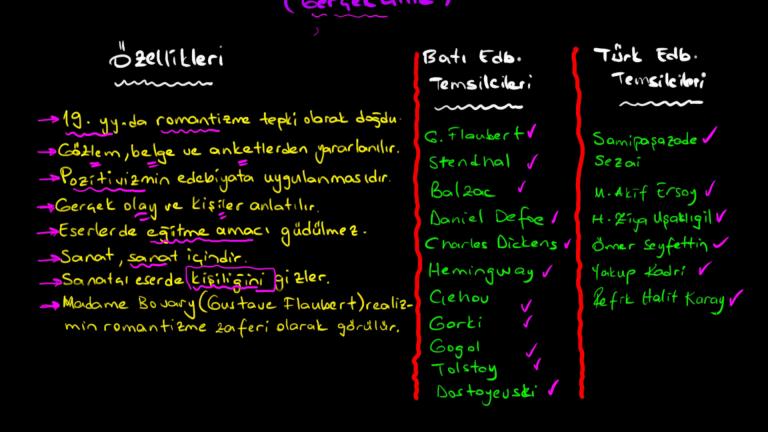 (Gerçekçilik)
Özellikleri
→ 19. yy.da romantizme tepki olarak doğdu.
→ Gözlem, belge ve anketlerden yararlanılır.
→ Pozitivizmin edebiyata uygulanmasıdır.
→ Gerçek olay ve kişiler anlatılır.
→ Eserlerde eğitme amacı güdülmez.
→ Sanat, sanat içindir.
→ Sanatçı eserde kişiliğini gizler.
→ Madame Bovary (Gustave Flaubert) realiz-
min romantizme zaferi olarak görülür.
Batı Edb.
Temsilcileri
G. Flaubert ✓
Stendhal ✓
Balzac ✓
Daniel Defoe ✓
Charles Dickens ✓
Hemingway ✓
Çehov ✓
Gorki ✓
Gogol ✓
Tolstoy ✓
Dostoyevski ✓
Türk Edb.
Temsilcileri
Samipaşazade ✓
Sezai
M. Akif Ersoy ✓
H. Ziya Uşaklıgil ✓
Ömer Seyfettin ✓
Yakup Kadri ✓
Refik Halit Karay ✓